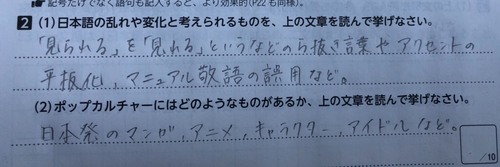 記号だけでなく語句も記入すると、より効果的(P22も同様)。
2 (1)日本語の乱れや変化と考えられるものを、上の文章を読んで挙げなさい。
「見られる」を「見れる」というなどのら抜き言葉やアクセントの
平板化、マニュアル敬語の誤用など。
(2)ポップカルチャーにはどのようなものがあるか、上の文章を読んで挙げなさい。
日本発のマンガ、アニメ、キャラクター、アイドルなど。
/10